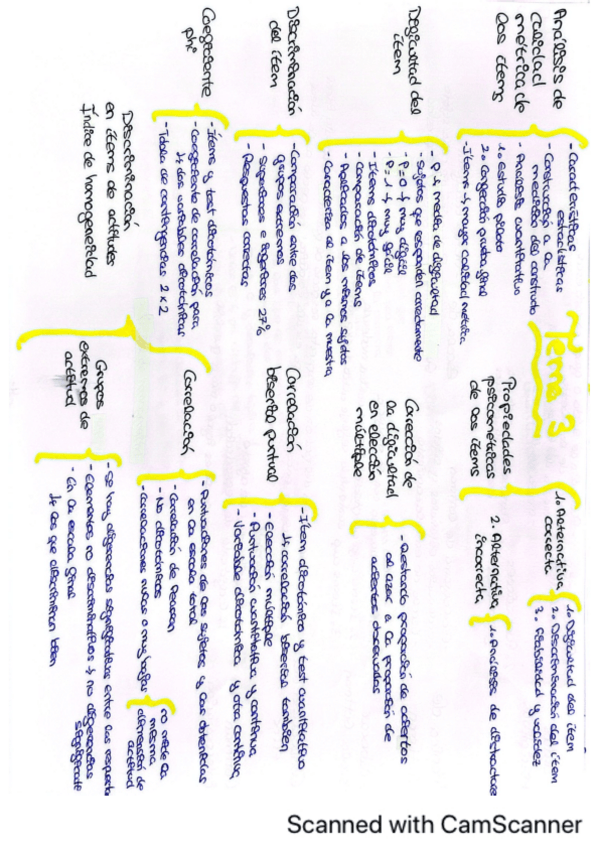 Tema 3
Análisis de
calidad
métrica de
los ítems
- Características
estadísticas
- Construcción a la
medición del constructo
- Análisis cuantitativo
1. estudio piloto
2. Corrección prueba final
- Ítems → mayor calidad métrica
Propiedades
psicométricas
de los ítems
1. Alternativa
correcta
1. Dificultad del ítem
2. Discriminación del ítem
3. Fiabilidad y validez
2. Alternativa
incorrecta
1. Análisis de distractores
Dificultad del
ítem
- P → media de dificultad
- Sujetos que responden correctamente
P=0 → muy difícil
P=1 → muy fácil
- Ítems dicotómicos
- Comparación de ítems
- Aplicados a los mismos sujetos
- Caracteriza al ítem y a la muestra
Corrección de
la dificultad
en elección
múltiple
- Restando proporción de aciertos
al azar a la proporción de
aciertos observados
Discriminación
del ítem
- Comparación entre dos
grupos extremos
- Superiores e inferiores 27%
- Respuestas correctas
Correlación
biserial puntual
- Ítem dicotómico y test cuantitativo
↳ correlación biserial también
- Elección múltiple
- Puntuación cuantitativa y continua
- Variable dicotómica y otra continua
Coeficiente
phi
- Ítems y test dicotómicos
- Coeficiente de correlación para
↳ dos variables dicotómicas
- Tabla de contingencias 2x2
Discriminación
en ítems de actitudes
Índice de homogeneidad
Correlación
- Puntuaciones de los sujetos y las obtenidas
en la escala total
- Correlación de Pearson
- No dicotómicos
- Correlaciones nulas o muy bajas
no mide la
misma
dimensión de
actitud
Grupos
extremos de
actitud
- Se hay diferencias significativas entre las respuestas
- Elementos no discriminativos → no diferencias
significat
- En la escala final
↳ los que discriminan bien
Scanned with CamScanner